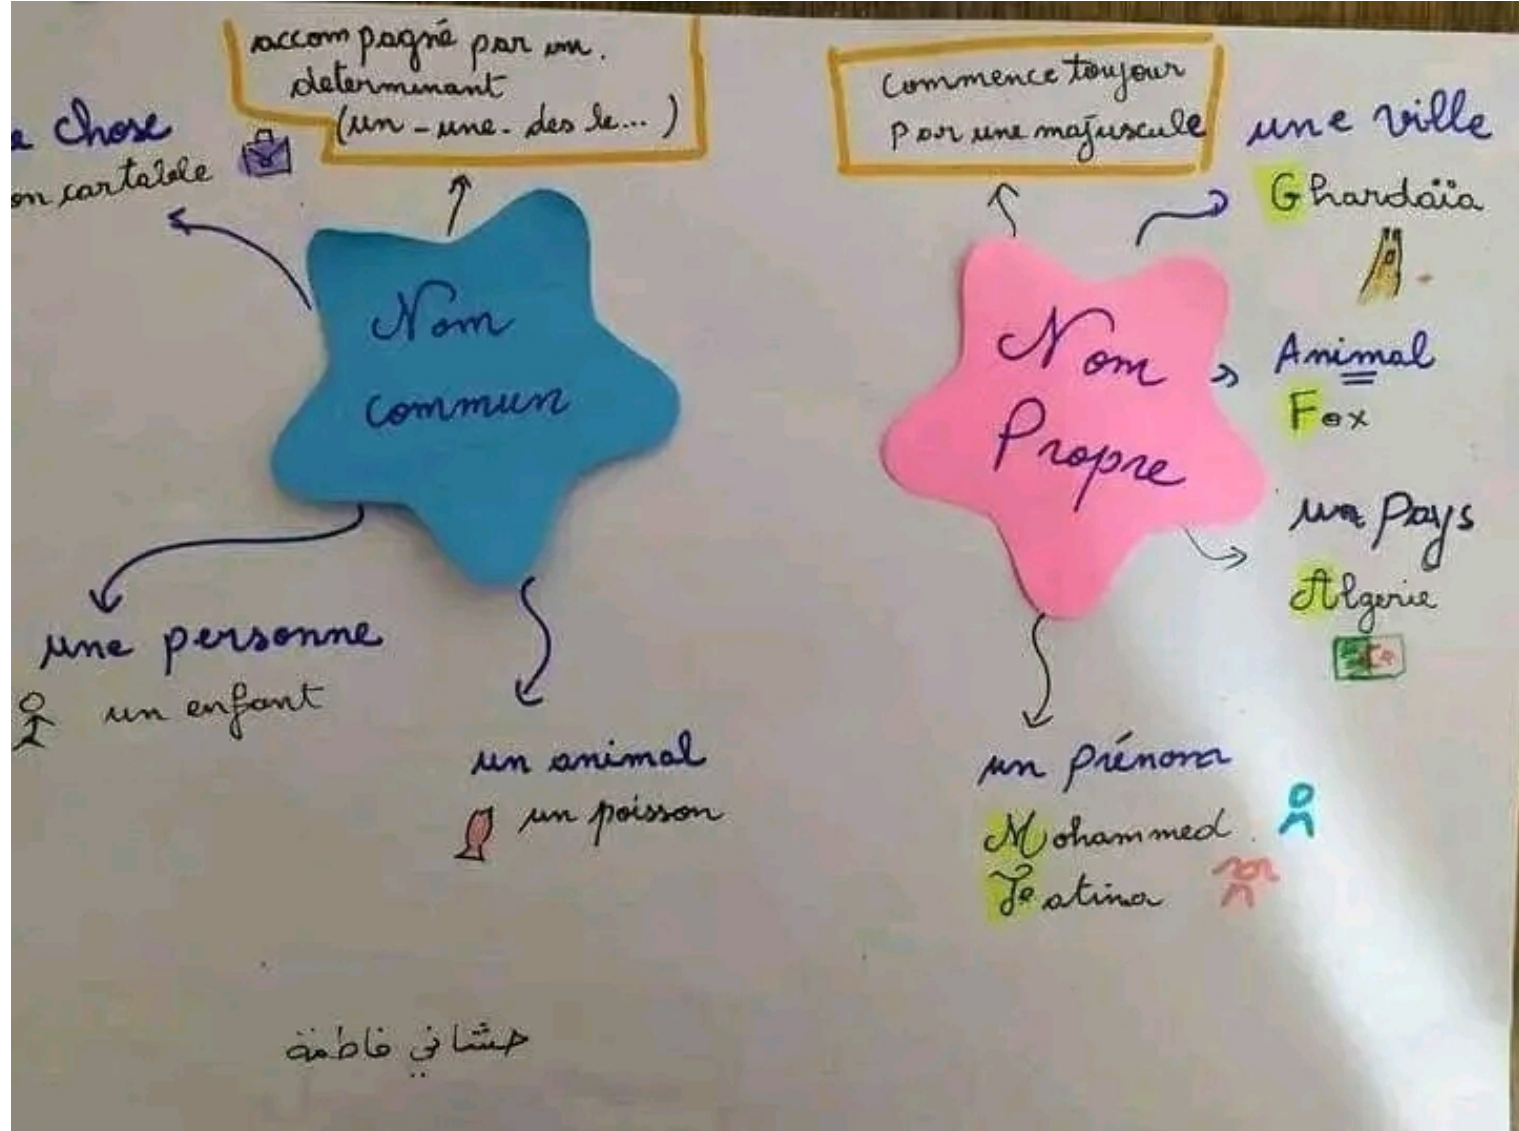 accompagné par un.
determinant
(un - une - des le... )
chose
cartable
Nom
commun
une personne
un enfant
un animal
un poisson
commence toujour
par une majuscule
Nom
Propre
une ville
Ghardaïa
Animal
Fox
un Pays
Algerie
un prénom
Mohammed
Fatima
حشاني فاطمة